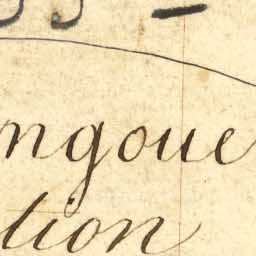 ngoue
tion